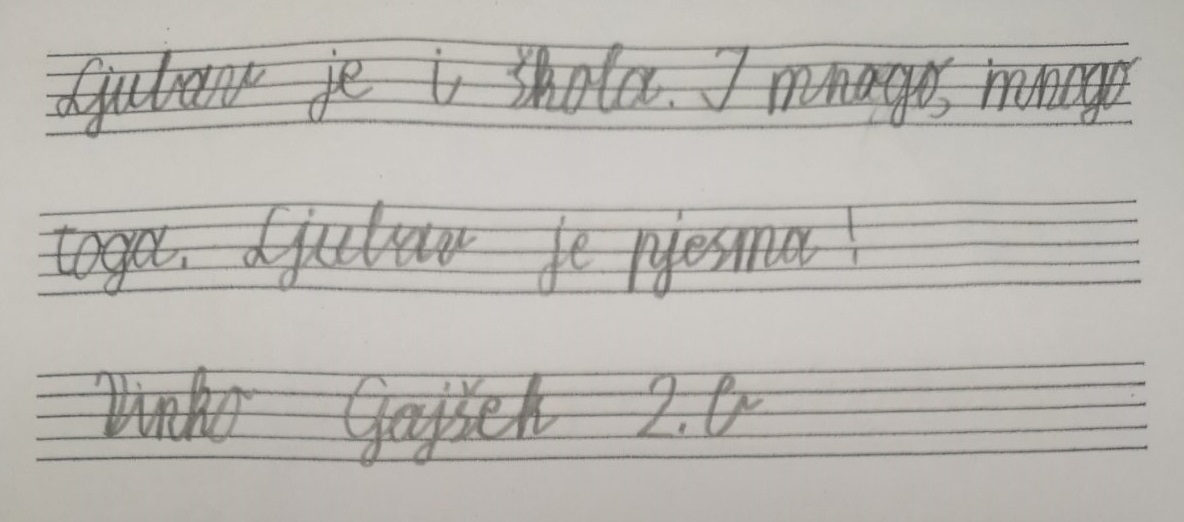 Ljubav je i škola. I mnogo, mnogo
toga. Ljubav je pjesma!
Vinko Gajšek 2.a